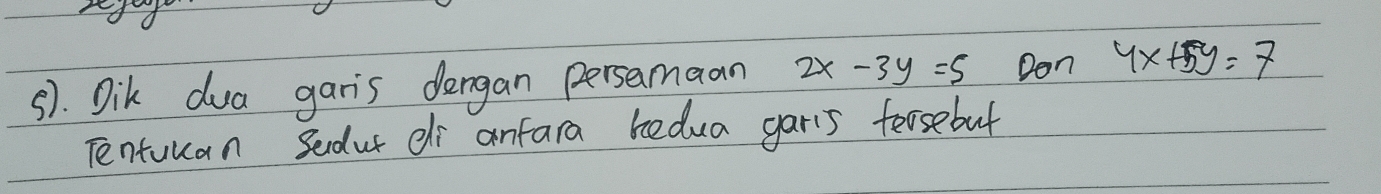 5). Dik dua garis dengan persamaan 2x - 3y = 5 Dan 4x+5y = 7
Tentukan Sudut di antara kedua garis tersebut